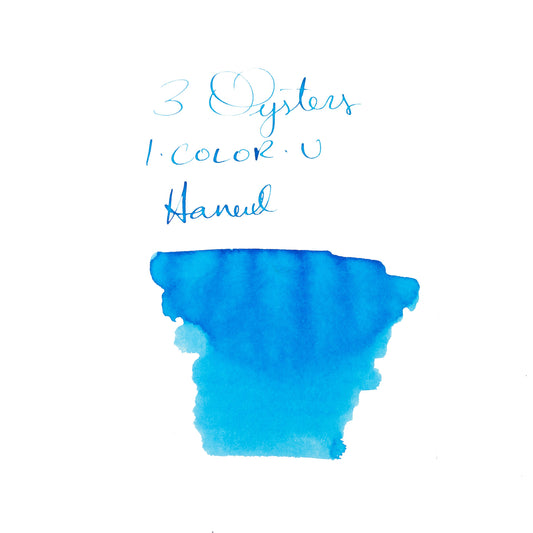 3 Oysters
I·COLOR·U
Haneul